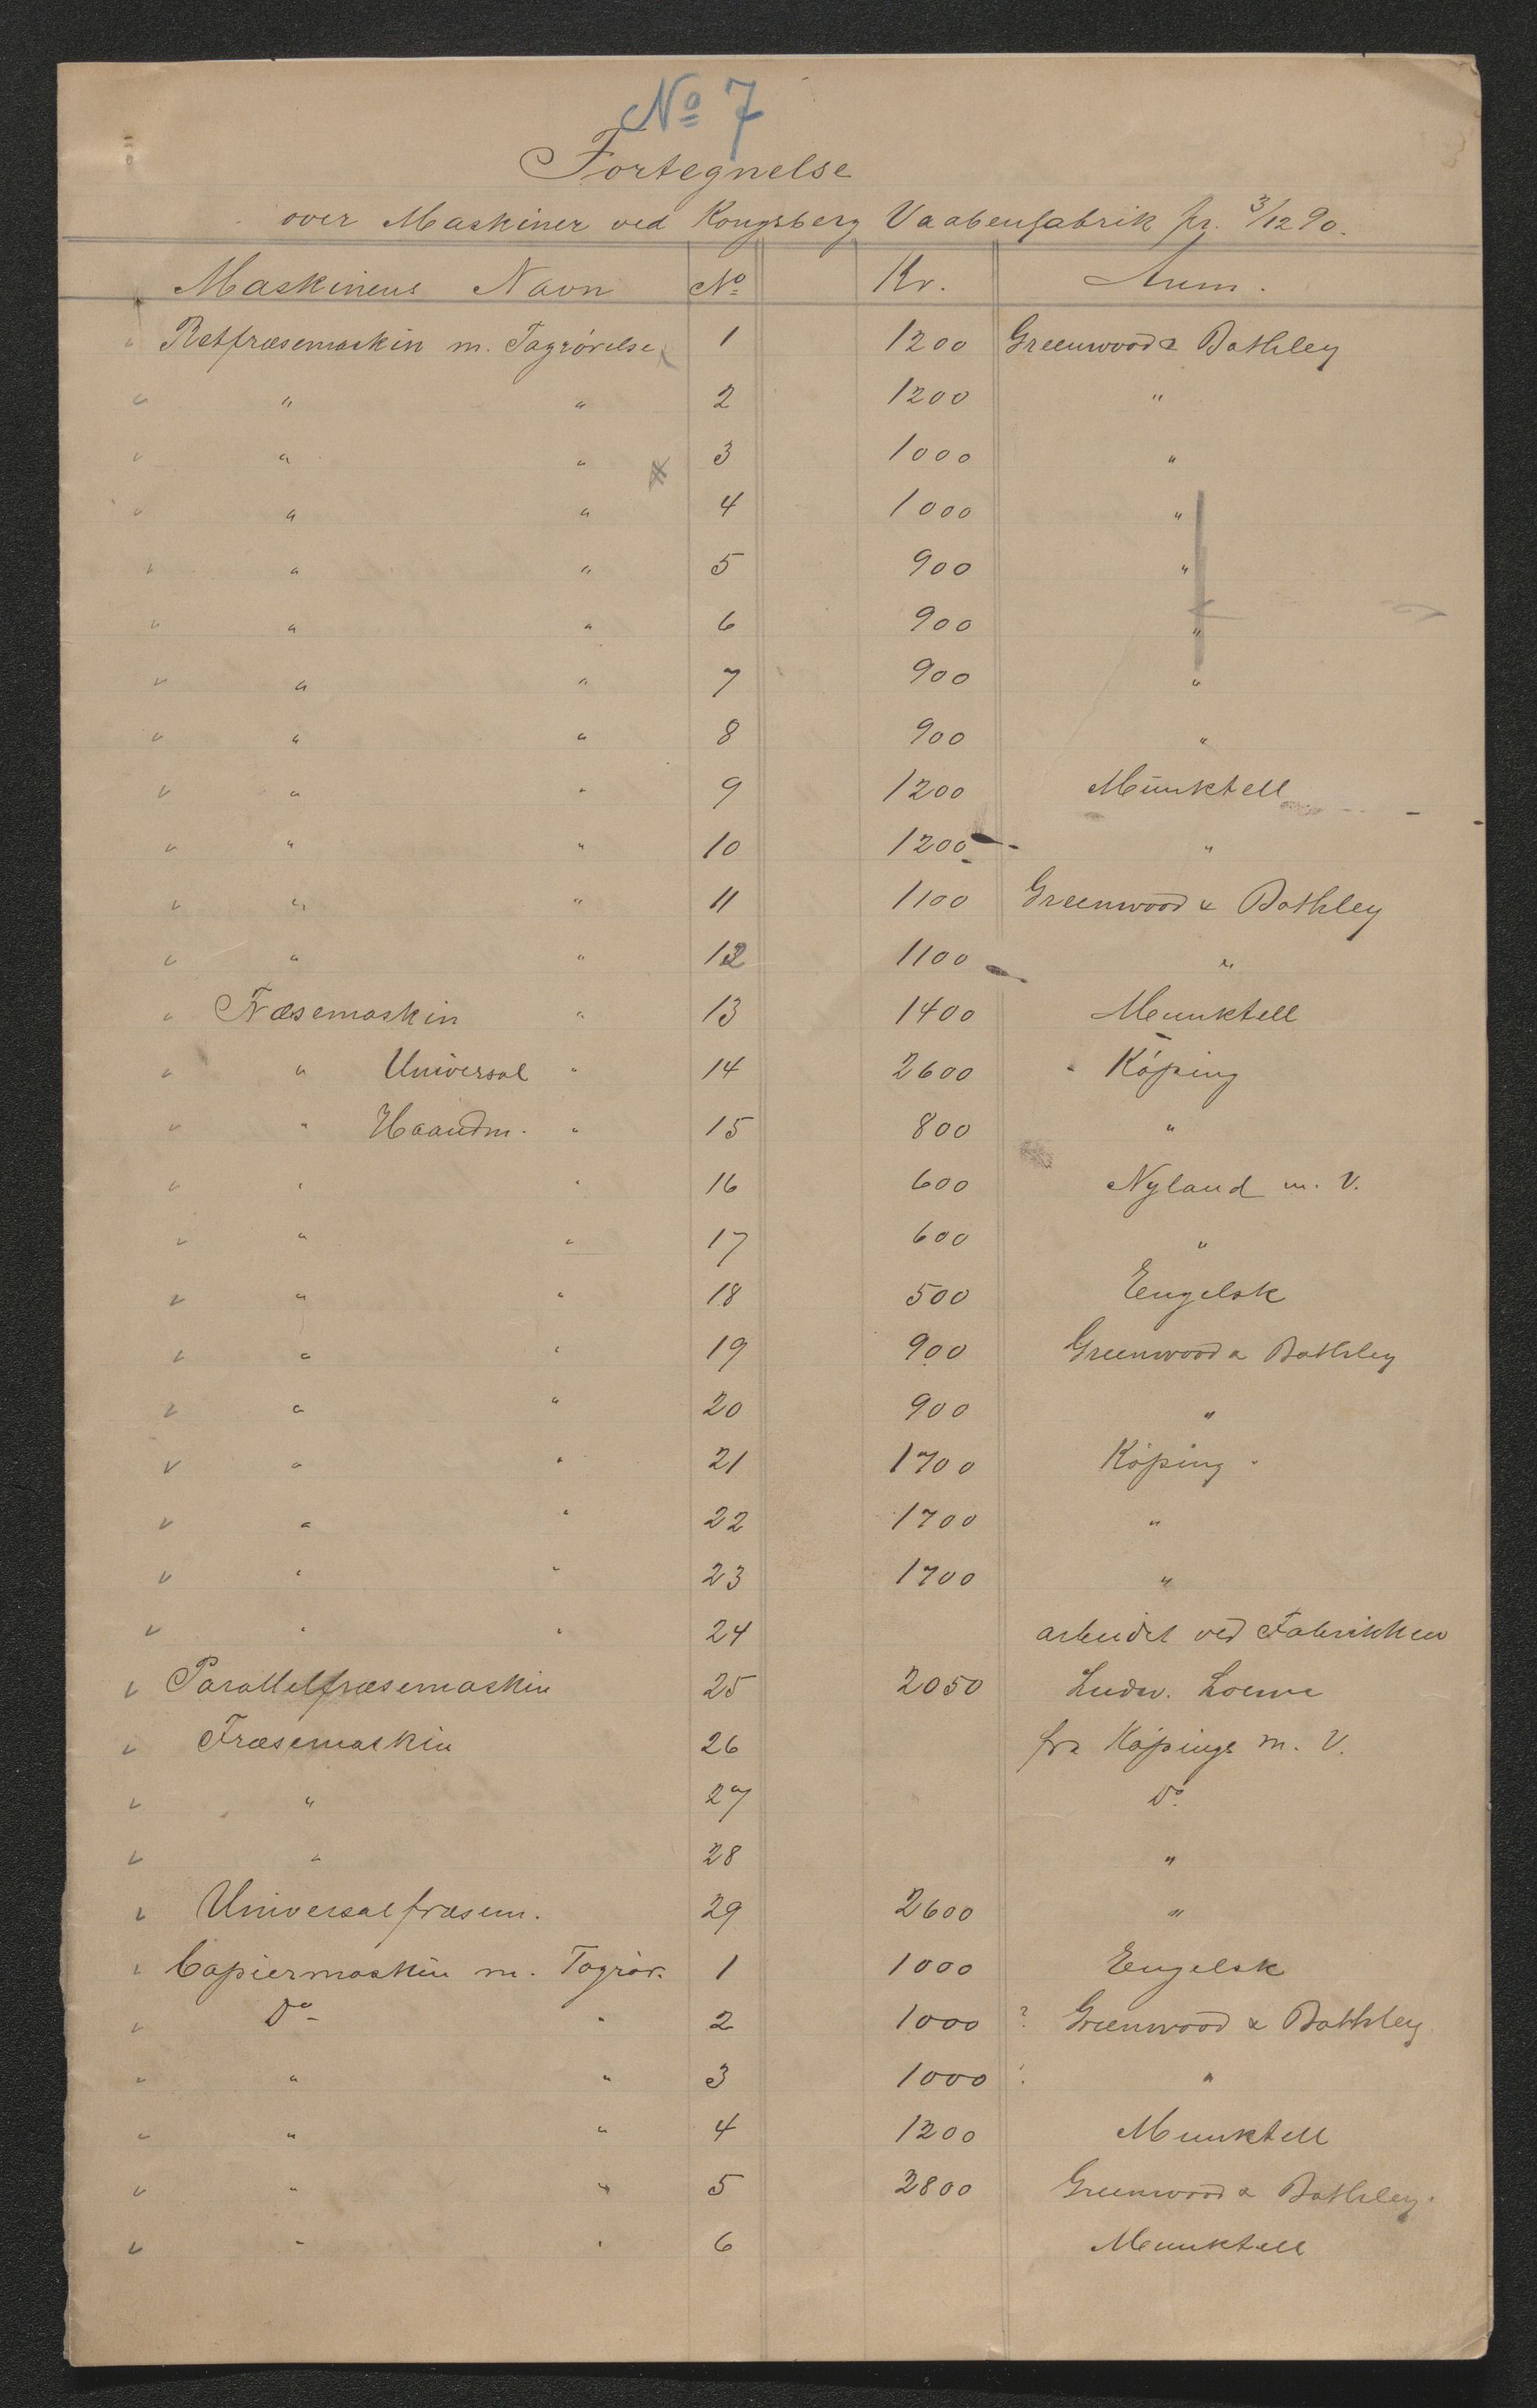 No 7
Fortegnelse
over Maskiner ved Kongsberg Vaabenfabrik pr. 3/12 90.
Maskinens Navn No Kr. Anm.
Retfræsemaskin m. Tagrørelse 1 1200 Greenwood & Bathley
" " 2 1200 "
" " 3 1000 "
" " 4 1000 "
" " 5 900 "
" " 6 900 "
" " 7 900 "
" " 8 900 "
" " 9 1200 Munktell
" " 10 1200 "
" " 11 1100 Greenwood & Bathley
" " 12 1100 "
Fræsemaskin " 13 1400 Munktell
" Universal " 14 2600 Köping
" Haandm. " 15 800 "
" " 16 600 Nyland m. V.
" " 17 600 "
" " 18 500 Engelsk
" " 19 900 Greenwood & Bathley
" " 20 900 "
" " 21 1700 Köping
" " 22 1700 "
" " 23 1700 "
" " 24 arbeidet ved Fabrikken
Parallelfræsemaskin 25 2050 Ludw. Loewe
Fræsemaskin 26 fra Köpings m. V.
" 27 Do
" 28 "
Universalfræsem. 29 2600 "
Copiermaskin m. Tagrør. 1 1000 Engelsk
Do " 2 1000 ? Greenwood & Bathley
" " 3 1000 "
" " 4 1200 Munktell
" " 5 2800 Greenwood & Bathley.
" " 6 Munktell